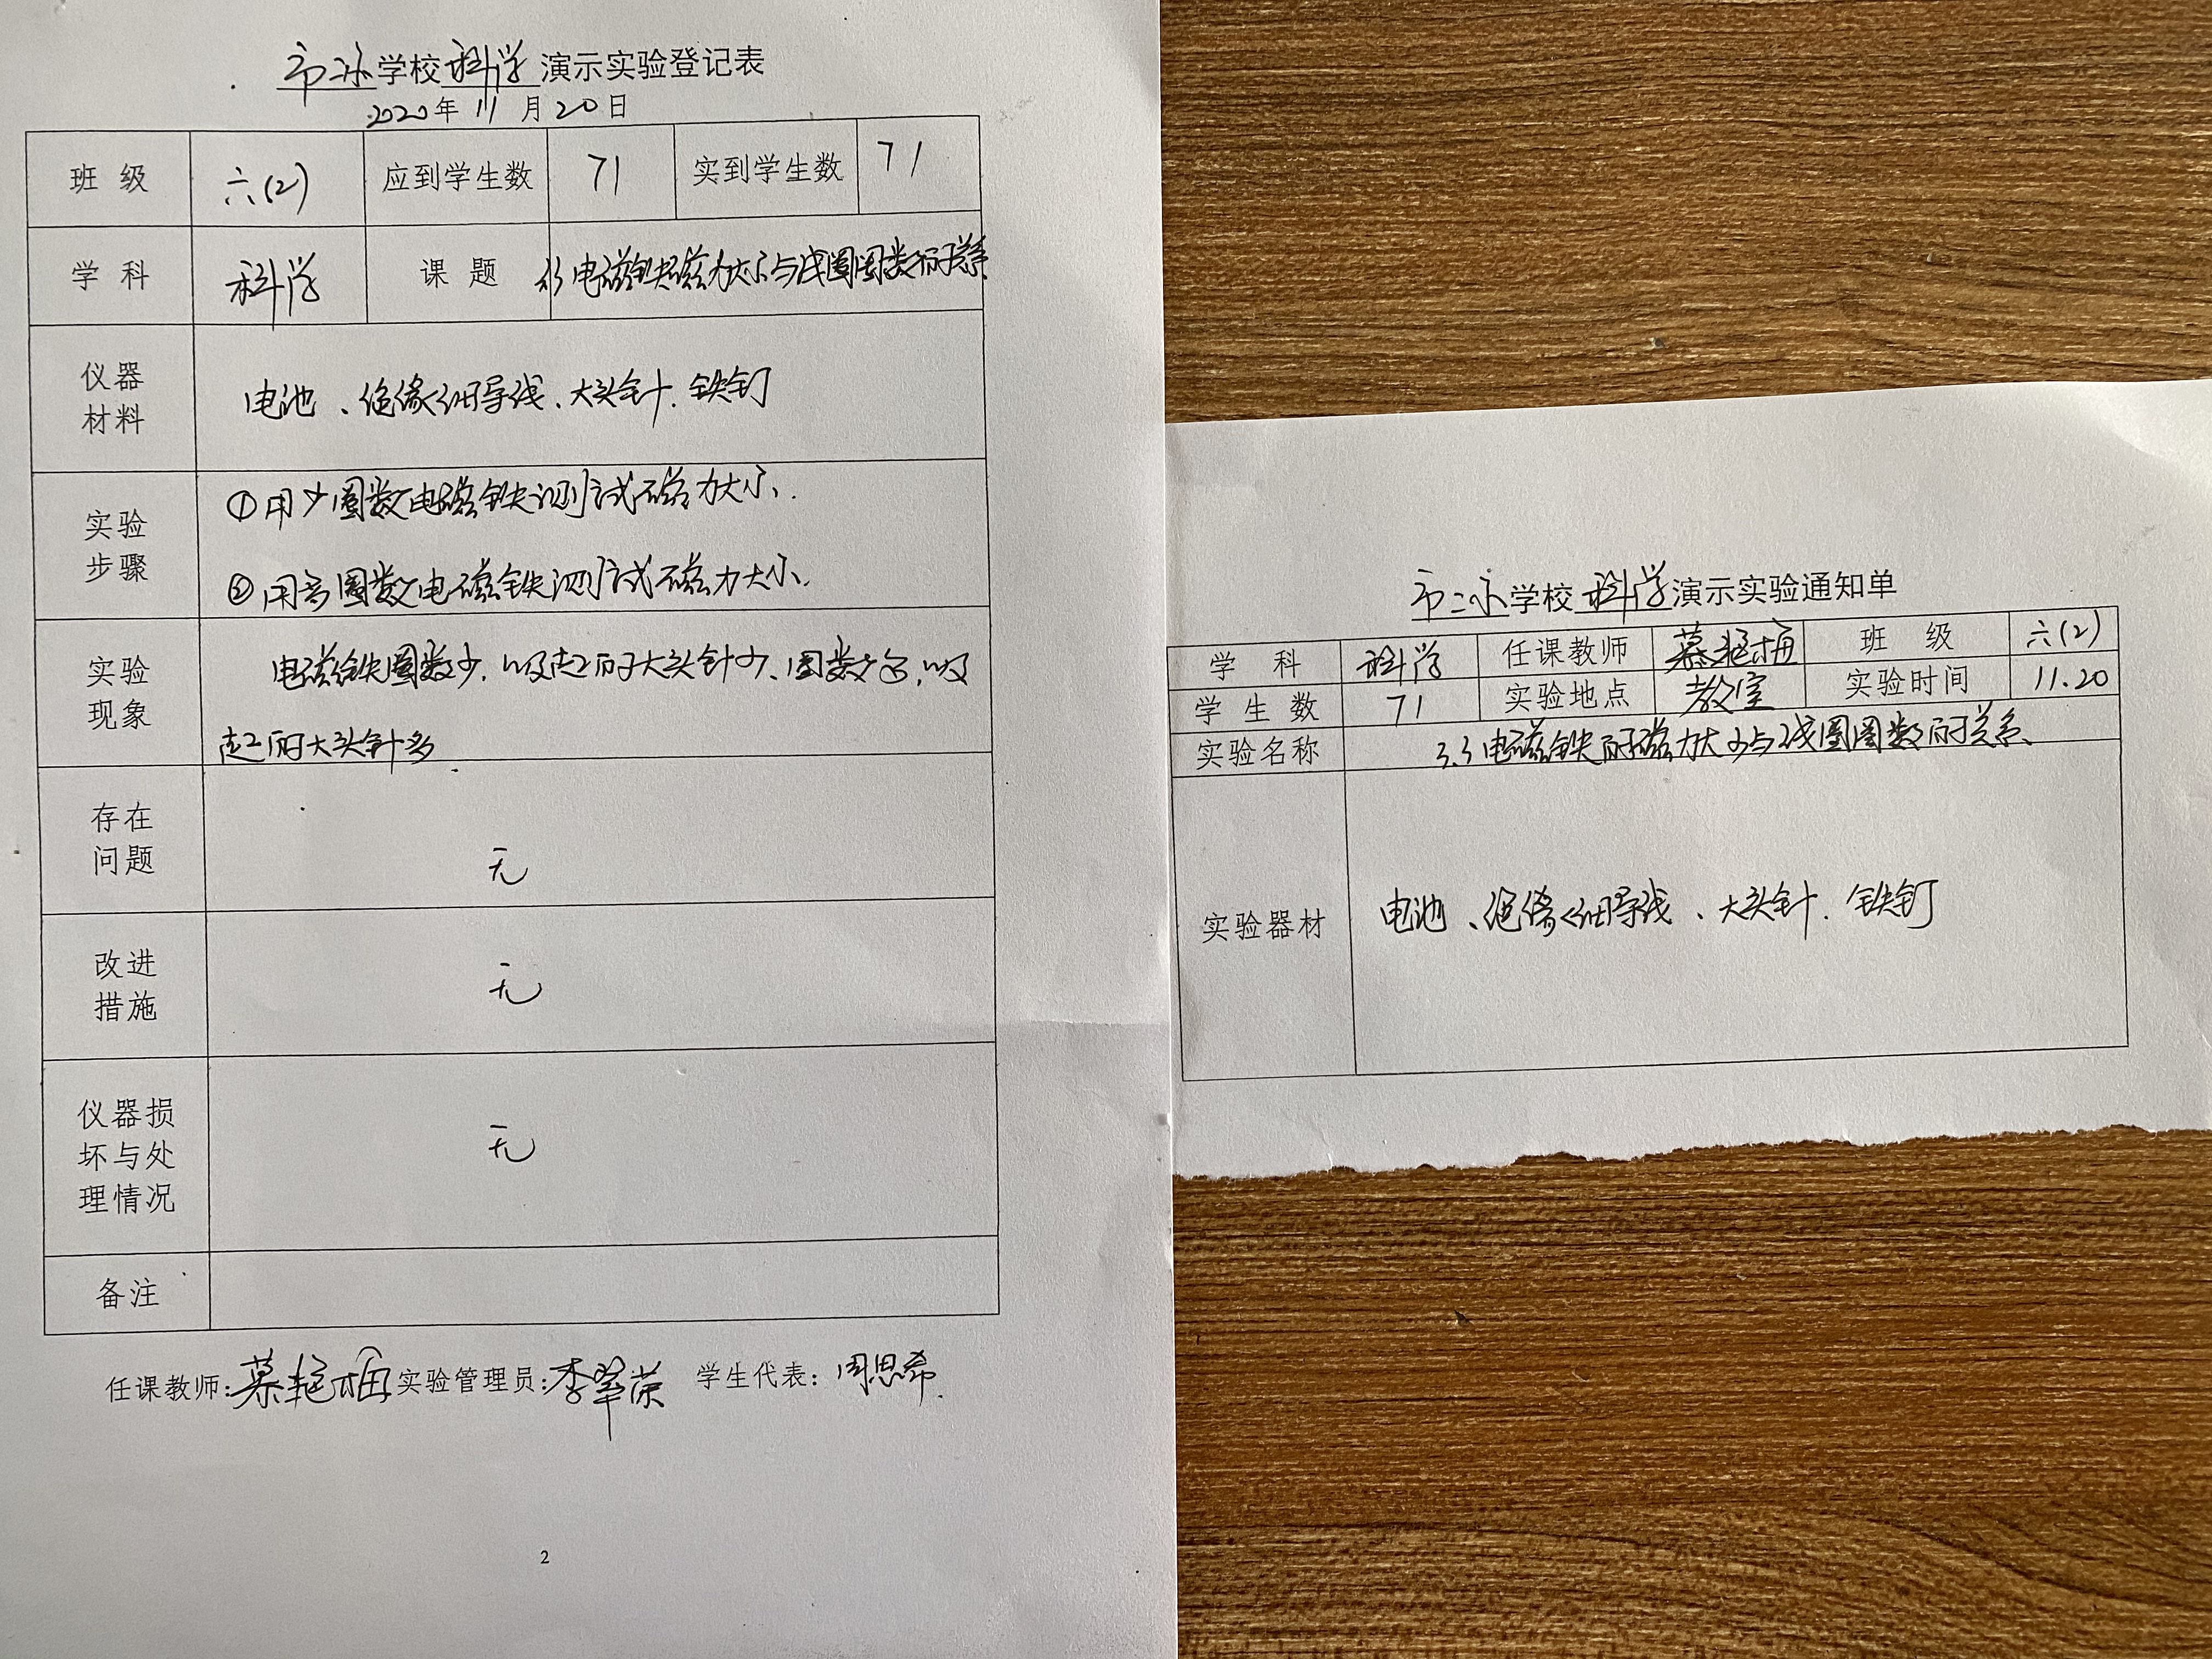 市二小学校科学演示实验登记表
2020年11月20日
班级 六(2) 应到学生数 71 实到学生数 71
学科 科学 课题 3.3电磁铁磁力大小与线圈圈数的关系
仪器材料 电池、绝缘细导线、大头针.铁钉
实验步骤 ①用少圈数电磁铁测试磁力大小.
②用多圈数电磁铁测试磁力大小.
实验现象 电磁铁圈数少,吸起的大头针少、圈数多,吸
起的大头针多.
存在问题 无
改进措施 无
仪器损坏与处理情况 无
备注
任课教师:慕艳梅 实验管理员:李翠荣 学生代表:周思希.
2
市二小学校科学演示实验通知单
学科 科学 任课教师 慕艳梅 班级 六(2)
学生数 71 实验地点 教室 实验时间 11.20
实验名称 3.3电磁铁的磁力大小与线圈圈数的关系
实验器材 电池、绝缘细导线、大头针.铁钉